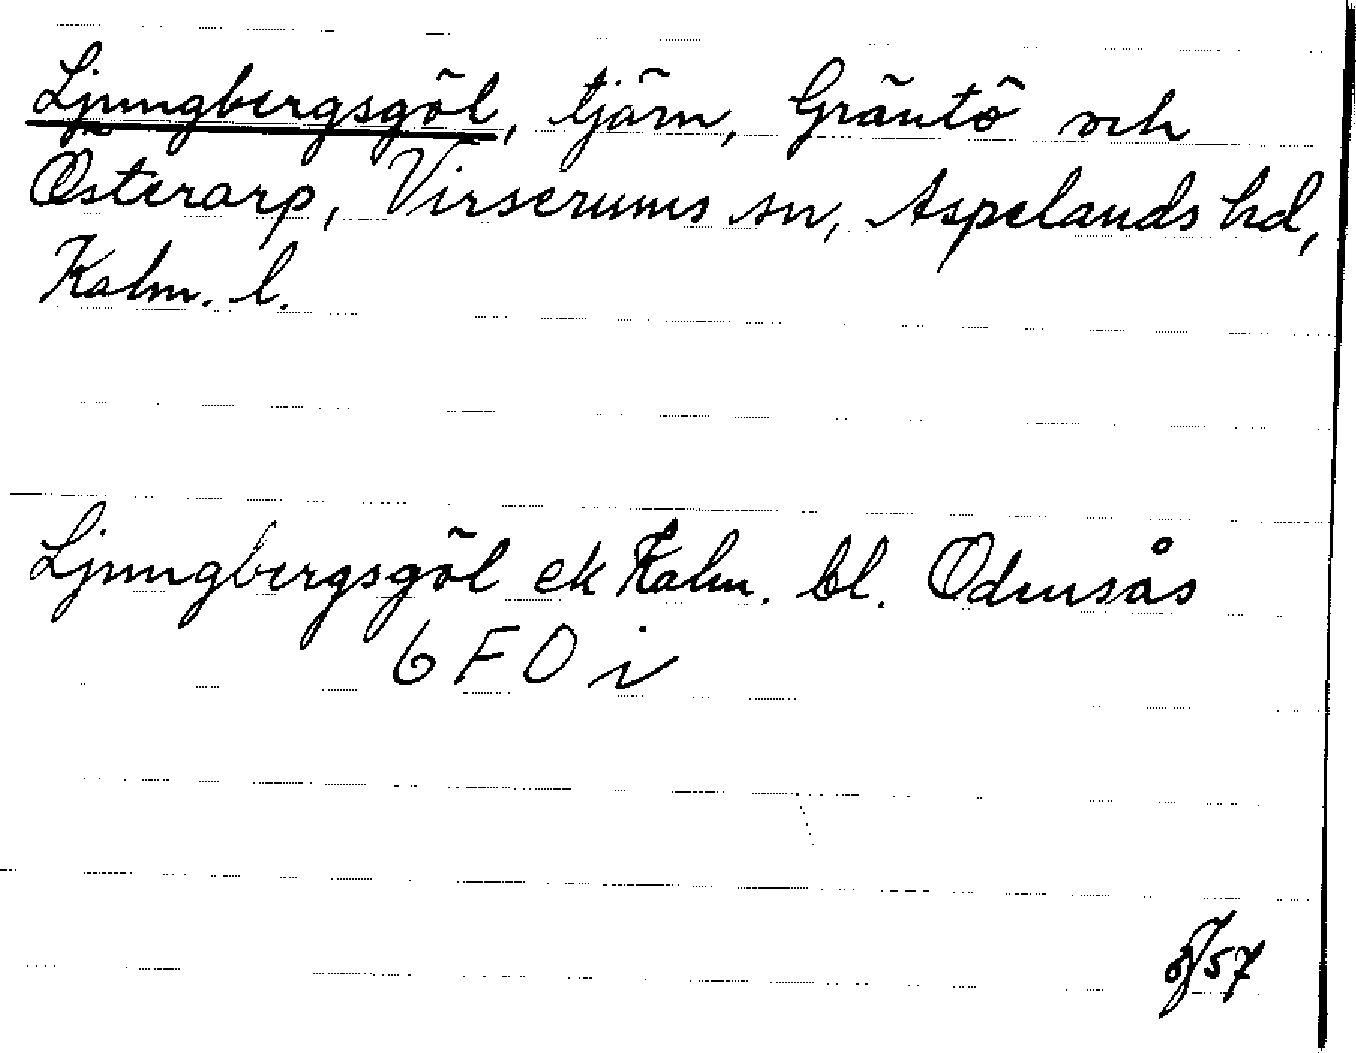 Ljungbergsgöl, tjärn, Gräntö och
Österarp, Virserums sn, Aspelands hd,
Kalm. l.
Ljungbergsgöl ek Kalm. bl. Odensås
6 F 0 i
57